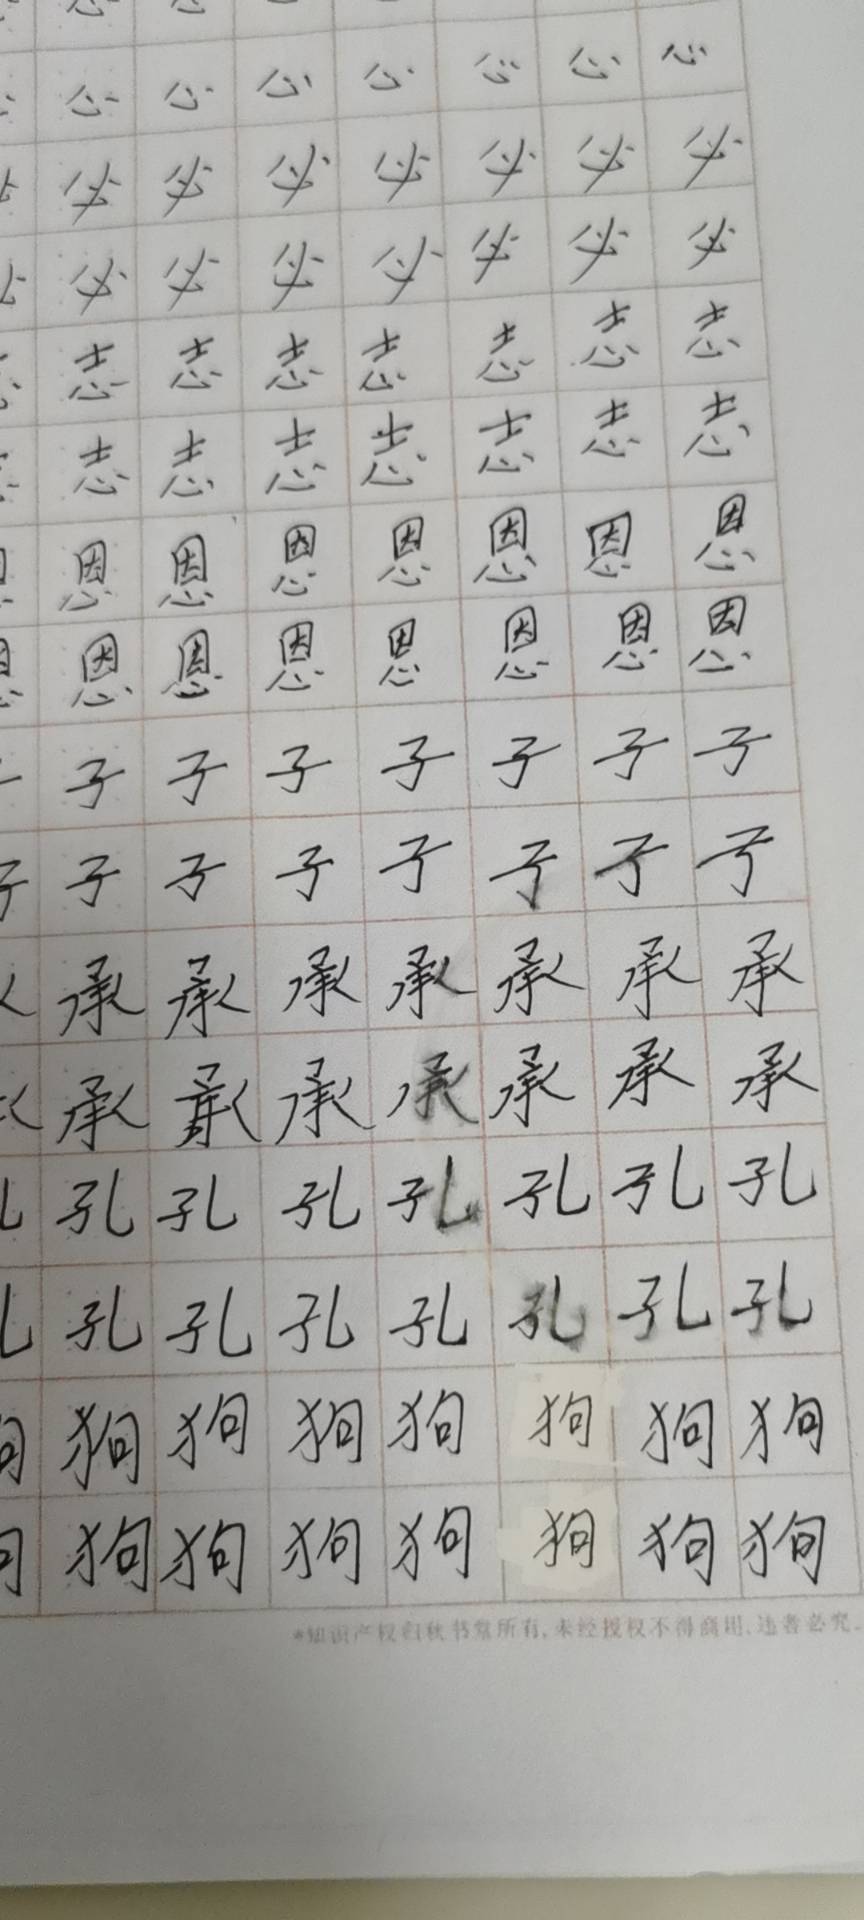 心 心 心 心 心 心 心
必 必 必 必 必 必 必
必 必 必 必 必 必 必
志 志 志 志 志 志 志
志 志 志 志 志 志 志
恩 恩 恩 恩 恩 恩 恩
恩 恩 恩 恩 恩 恩 恩
子 子 子 子 子 子 子
子 子 子 子 子 子 子
承 承 承 承 承 承 承
承 承 承 承 承 承 承
孔 孔 孔 孔 孔 孔 孔
孔 孔 孔 孔 孔 孔 孔
狗 狗 狗 狗 狗 狗 狗
狗 狗 狗 狗 狗 狗 狗
*知识产权归秋书堂所有,未经授权不得商用,违者必究.